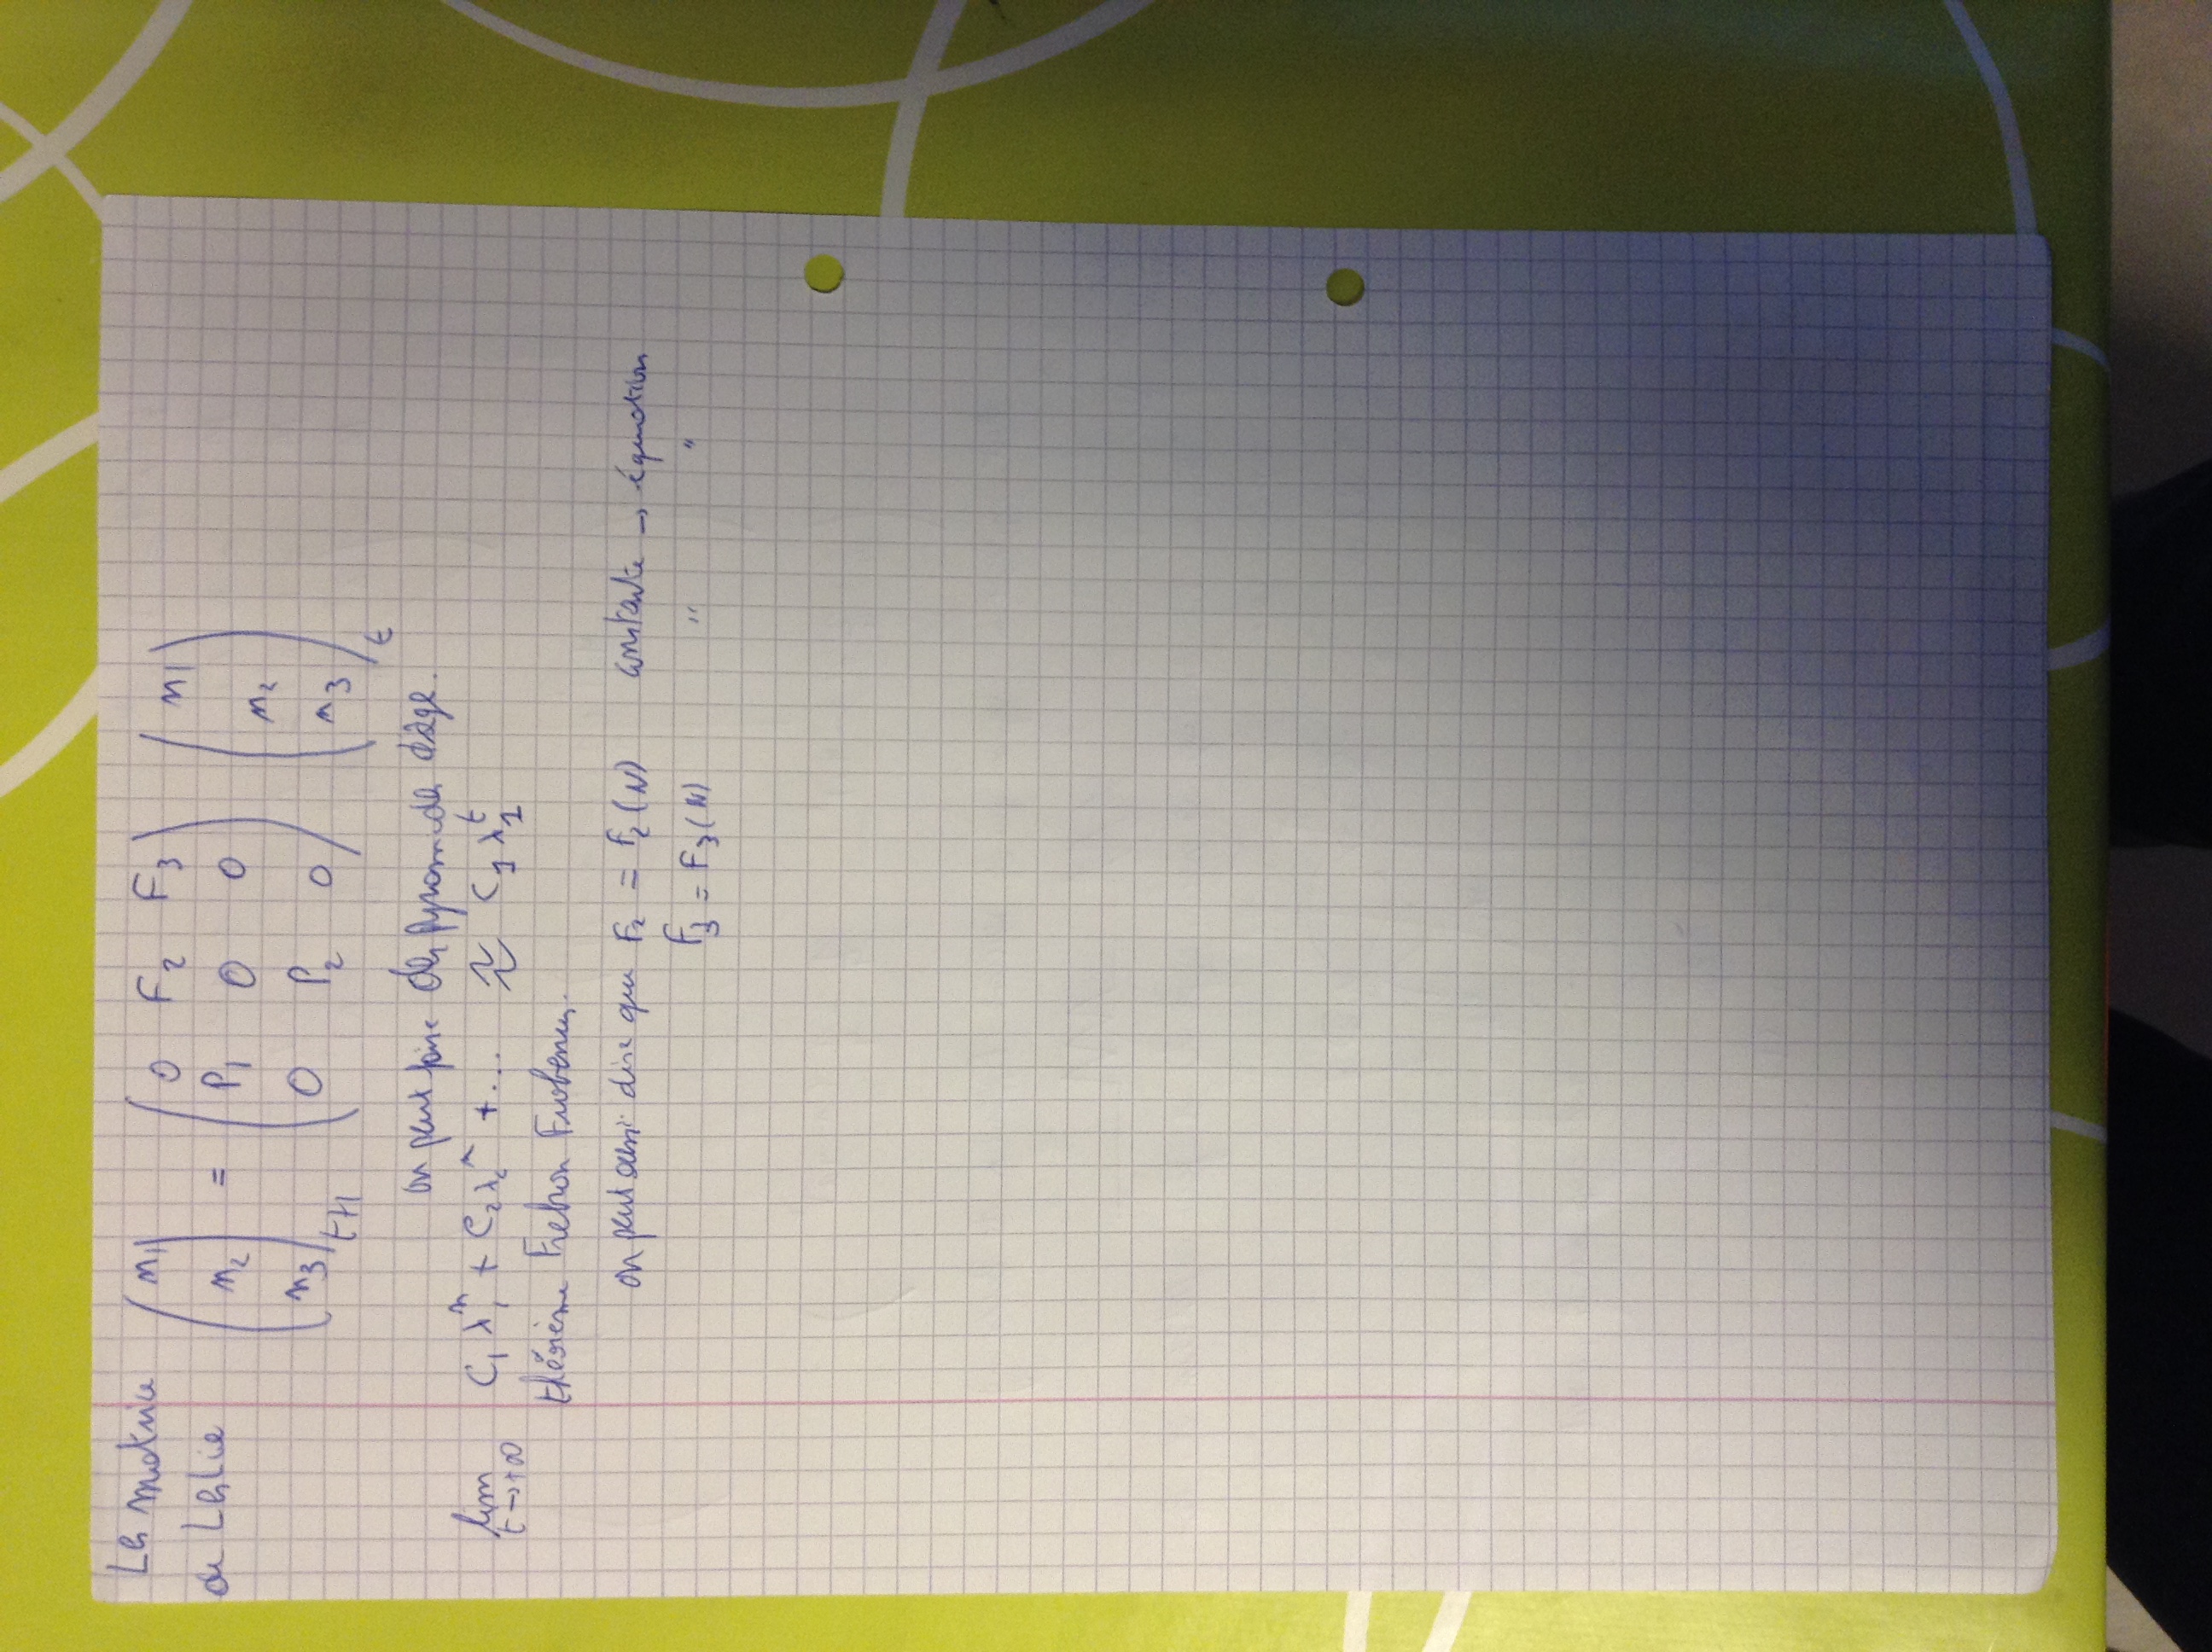 Les matrice
de Leslie
( n1 n2 n3 )t+1 = ( 0 F2 F3
P1 0 0
0 P2 0 ) ( n1 n2 n3 )t
on peut faire des pyramides d'âge.
lim t→+∞ C1 λ1^n + C2 λ2^n + ... ≈ C1 λ1^t
théorème Frebron Frobenius.
on peut aussi dire que F2 = F2(N) constante → équation
F3 = F3(N) " "